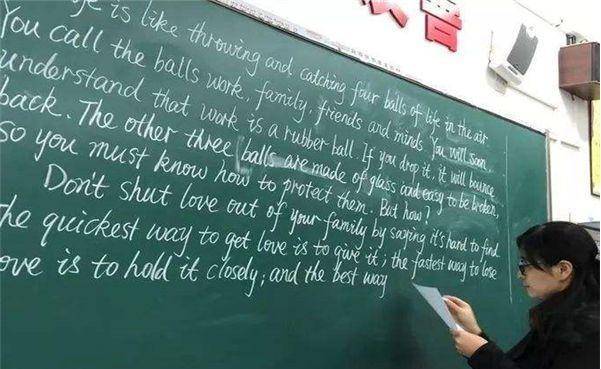 fe is like throwing and catching four balls of life in the air.
You call the balls work, family, friends and minds. You will soon
understand that work is a rubber ball. If you drop it, it will bounce
back. The other three balls are made of glass and easy to be broken,
so you must know how to protect them. But how?
Don't shut love out of your family by saying it's hard to find
he quickest way to get love is to give it; the fastest way to lose
ove is to hold it closely; and the best way